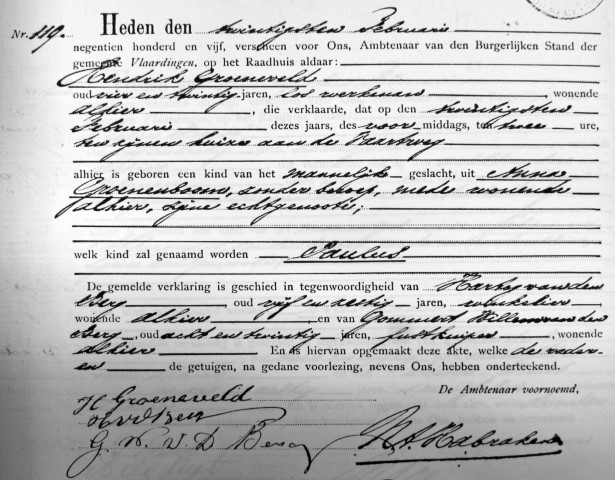 Nr. 119. Heden den twintigsten Februarii
negentien honderd en vijf, verscheen voor Ons, Ambtenaar van den Burgerlijken Stand der
gemeente Vlaardingen, op het Raadhuis aldaar:
Hendrik Groeneveld
oud vier en twintig jaren, los werkman, wonende
alhier, die verklaarde, dat op den twintigsten
Februarii dezes jaars, des voor middags, ten twee ure,
ten zijnen huize aan de Vaartweg
alhier is geboren een kind van het mannelijk geslacht, uit Anna
Groeneboom, zonder beroep, mede wonende
alhier, zijne echtgenoote;
welk kind zal genaamd worden Paulus
De gemelde verklaring is geschied in tegenwoordigheid van van den
Berg, oud vijf en zestig jaren, winkelier,
wonende alhier en van Gommert Willem van den
Berg, oud acht en twintig jaren, fustkuiper, wonende
alhier En is hiervan opgemaakt deze akte, welke de vader
en de getuigen, na gedane voorlezing, nevens Ons, hebben onderteekend.
De Ambtenaar voornoemd,
H Groeneveld
G. W. V. D Berg
Habraken